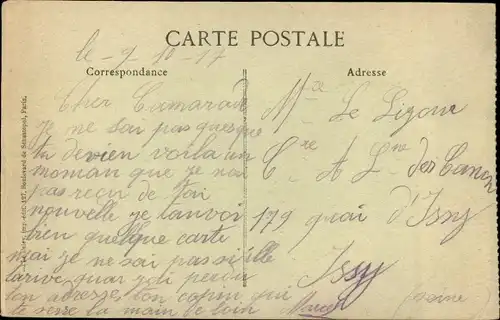 CARTE POSTALE
Correspondance
Adresse
le - 9 - 10 - 17
Cher Camarade
je ne sai pas quesque
tu devien voila un
moman que je nai
pas reçu de toi
nouvelle je lanvoi
bien quelque carte
mai je ne sai pas si ille
larive quar joli perdu
ton adresse ton copin qui
te serre la main de loin
Le Ligour
Cie A Lne des Canon
179 quai d'Issy
Issy
(Seine)